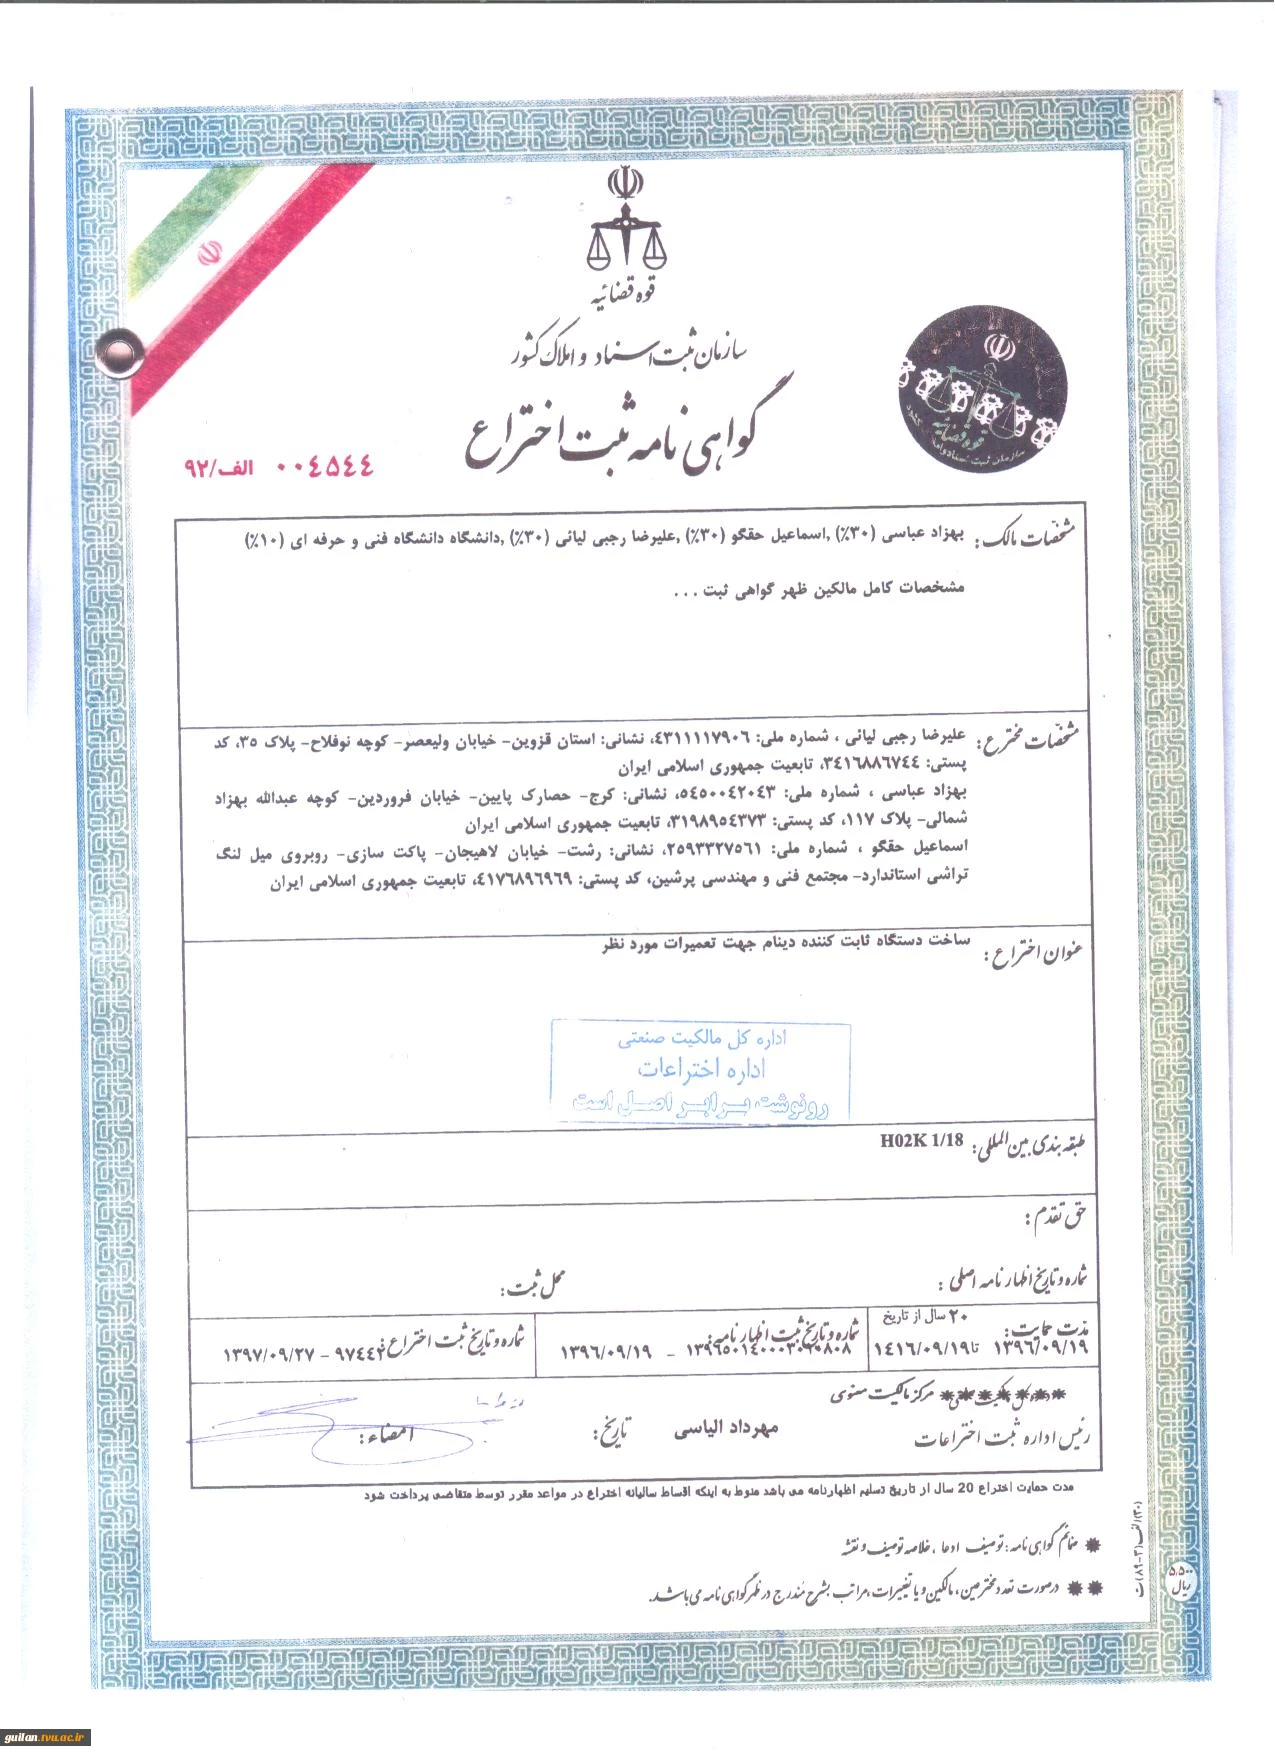 قوه قضائیه
سازمان ثبت اسناد و املاک کشور
گواهی نامه ثبت اختراع
۰۰٤٥٤٤ الف/۹۲
مشخصات مالک: بهزاد عباسی (۳۰٪) ,اسماعیل حقگو (۳۰٪) ,علیرضا رجبی لیائی (۳۰٪) ,دانشگاه دانشگاه فنی و حرفه ای (۱۰٪)
مشخصات کامل مالکین ظهر گواهی ثبت ...
مشخصات مخترع: علیرضا رجبی لیائی ، شماره ملی: ٤۳۱۱۱۱۷۹۰٦، نشانی: استان قزوین- خیابان ولیعصر- کوچه نوفلاح- پلاک ۳٥، کد
پستی: ۳٤۱٦۸۸٦۷٤٤، تابعیت جمهوری اسلامی ایران
بهزاد عباسی ، شماره ملی: ٥٤٥۰۰٤۲۰٤۳، نشانی: کرج- حصارک پایین- خیابان فروردین- کوچه عبدالله بهزاد
شمالی- پلاک ۱۱۷، کد پستی: ۳۱۹۸۹٥٤۳۷۳، تابعیت جمهوری اسلامی ایران
اسماعیل حقگو ، شماره ملی: ۲٥۹۳۳۲۷٥٦۱، نشانی: رشت- خیابان لاهیجان- پاکت سازی- روبروی میل لنگ
تراشی استاندارد- مجتمع فنی و مهندسی پرشین، کد پستی: ٤۱۷٦۸۹٦۹٦۹، تابعیت جمهوری اسلامی ایران
عنوان اختراع: ساخت دستگاه ثابت کننده دینام جهت تعمیرات مورد نظر
اداره کل مالکیت صنعتی
اداره اختراعات
رونوشت برابر اصل است
طبقه بندی بین المللی: H02K 1/18
حق تقدم:
شماره و تاریخ اظهارنامه اصلی: محل ثبت:
مدت حمایت: ۲۰ سال از تاریخ
۱۳۹٦/۰۹/۱۹ تا ۱٤۱٦/۰۹/۱۹
شماره و تاریخ ثبت اظهارنامه:
۱۳۹٦/۰۹/۱۹
شماره و تاریخ ثبت اختراع:
۱۳۹۷/۰۹/۲۷
مرکز مالکیت معنوی
رئیس اداره ثبت اختراعات مهرداد الیاسی تاریخ: امضاء:
مدت حمایت اختراع 20 سال از تاریخ تسلیم اظهارنامه می باشد منوط به اینکه اقساط سالیانه اختراع در مواعد مقرر توسط متقاضی پرداخت شود
ضمائم گواهی نامه: توصیف ادعا، خلاصه توصیف و نقشه
درصورت تعدد مخترعین، مالکین و یا تغییرات، مراتب بشرح مندرج در ظهر گواهی نامه می باشد.
ریال
guilan.tvu.ac.ir